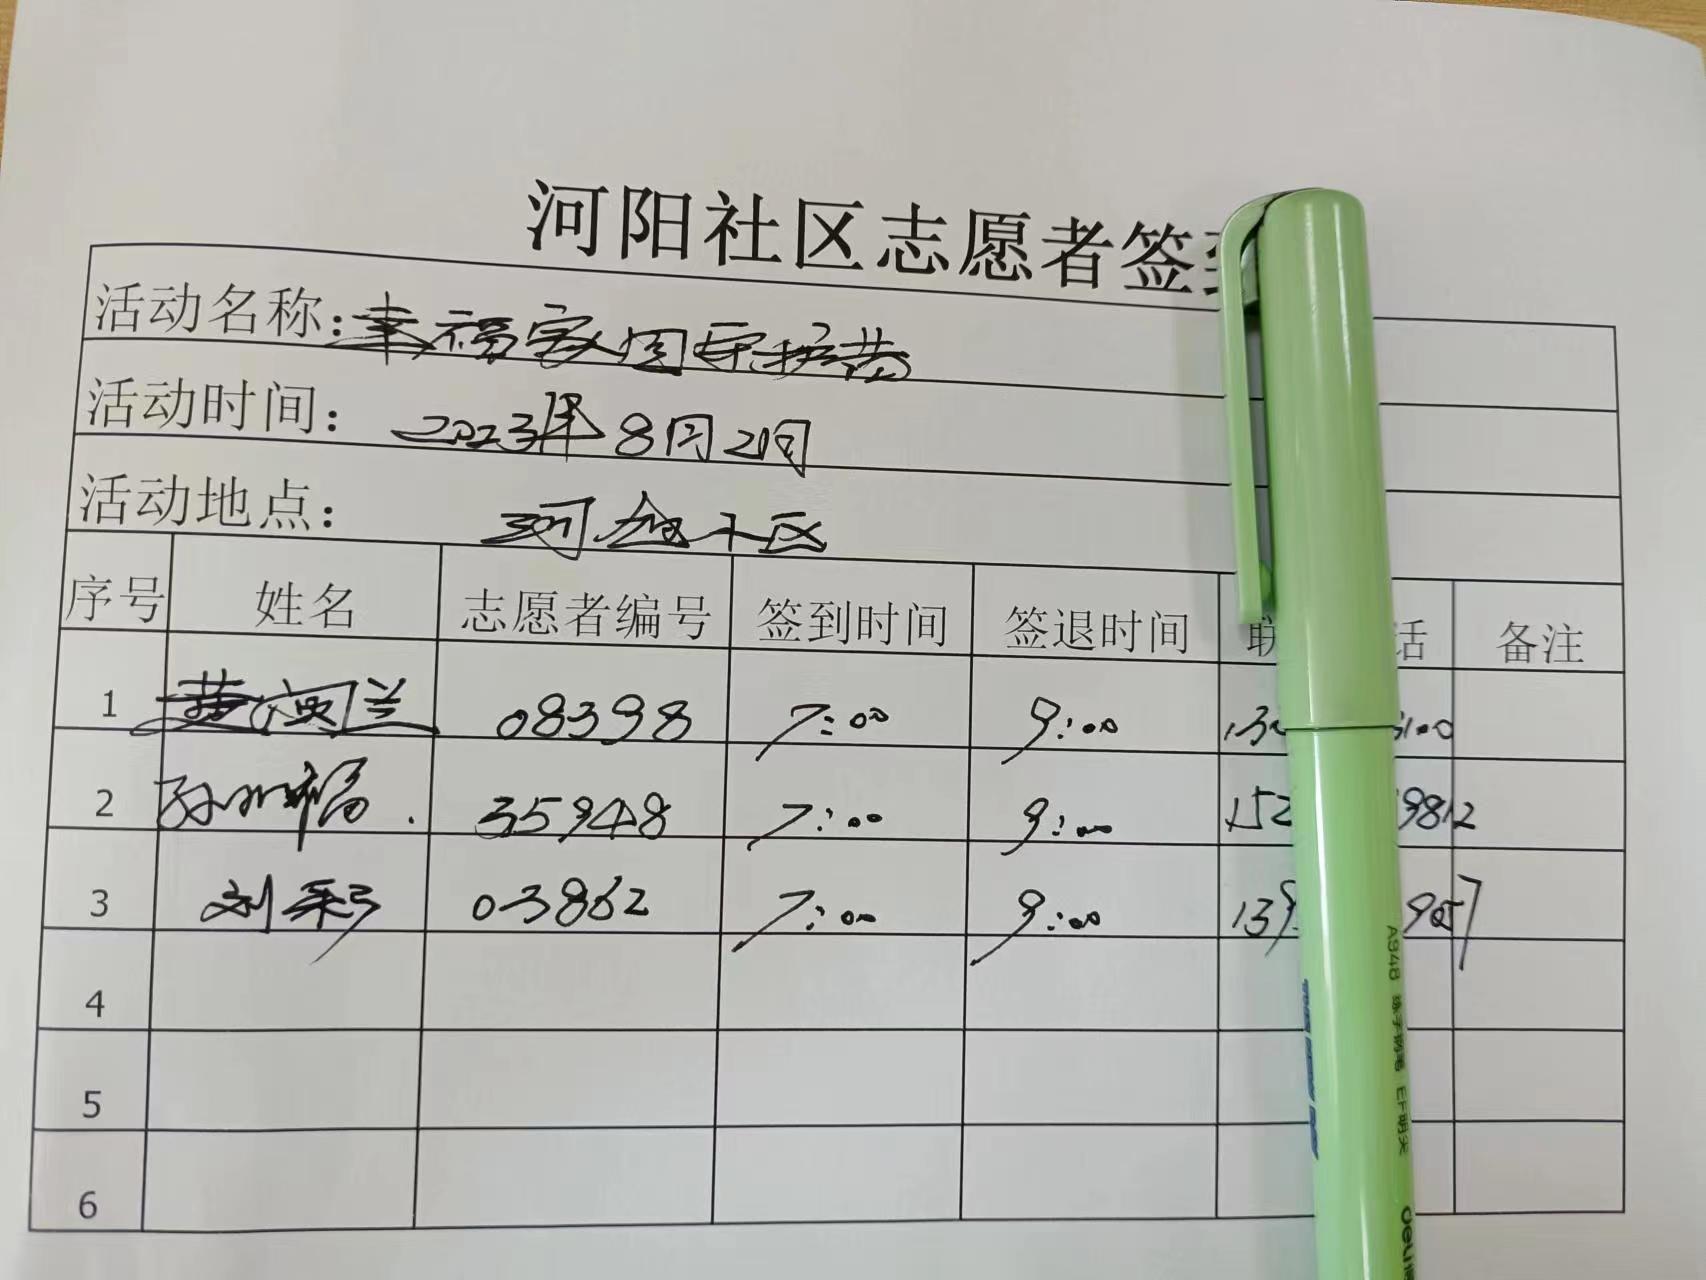 河阳社区志愿者签到
活动名称:幸福家园守护者
活动时间: 2023年8月21日
活动地点: 小区
序号 姓名 志愿者编号 签到时间 签退时间 联 话 备注
1 兰 08398 7:00 9:00 130 3100
2 孙 福 35948 7:00 9:00 152 9812
3 刘彩 03862 7:00 9:00 139 9057
4
5
6
A948 EF明尖
deli